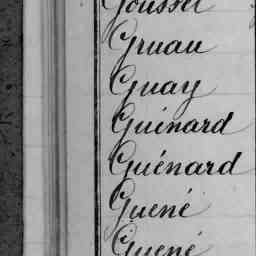 Gousset
Gruau
Guay
Guénard
Guénard
Guené
Guené